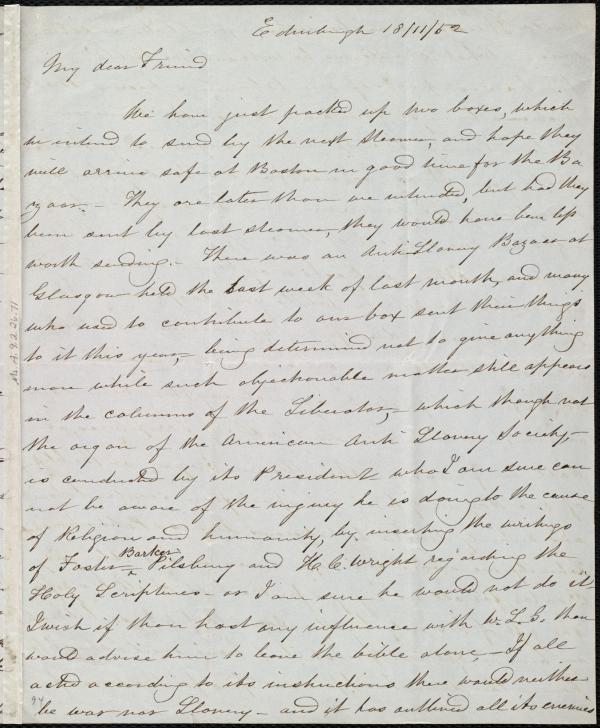 Edinburgh 18/11/52
My dear Friend
We have just packed up two boxes, which
we intend to send by the next steamer, and hope they
will arrive safe at Boston in good time for the Ba
zaar.- They are later than we intended, but had they
been sent by last steamer, they would have been less
worth sending.- There was an Anti Slavery Bazaar at
Glasgow held the last week of last month, and many
who used to contribute to our box sent their things
to it this year,- being determined not to give anything
more while such objectionable matter still appears
in the columns of the Liberator,- which though not
the organ of the American Anti Slavery Society,-
is conducted by its President who I am sure can
not be aware of the injury he is doing to the cause
of Religion and humanity, by inserting the writings
Barker
of Foster - Pilsbury and H. C. Wright regarding the
Holy Scriptures - or I am sure he would not do it
I wish if thou hast any influence with W. L. G. thou
would advise him to leave the bible alone,- If all
acted according to its instructions there would neither
be war nor Slavery - and it has outlived all its enemies
Ms. A. 9.2.26.71
94